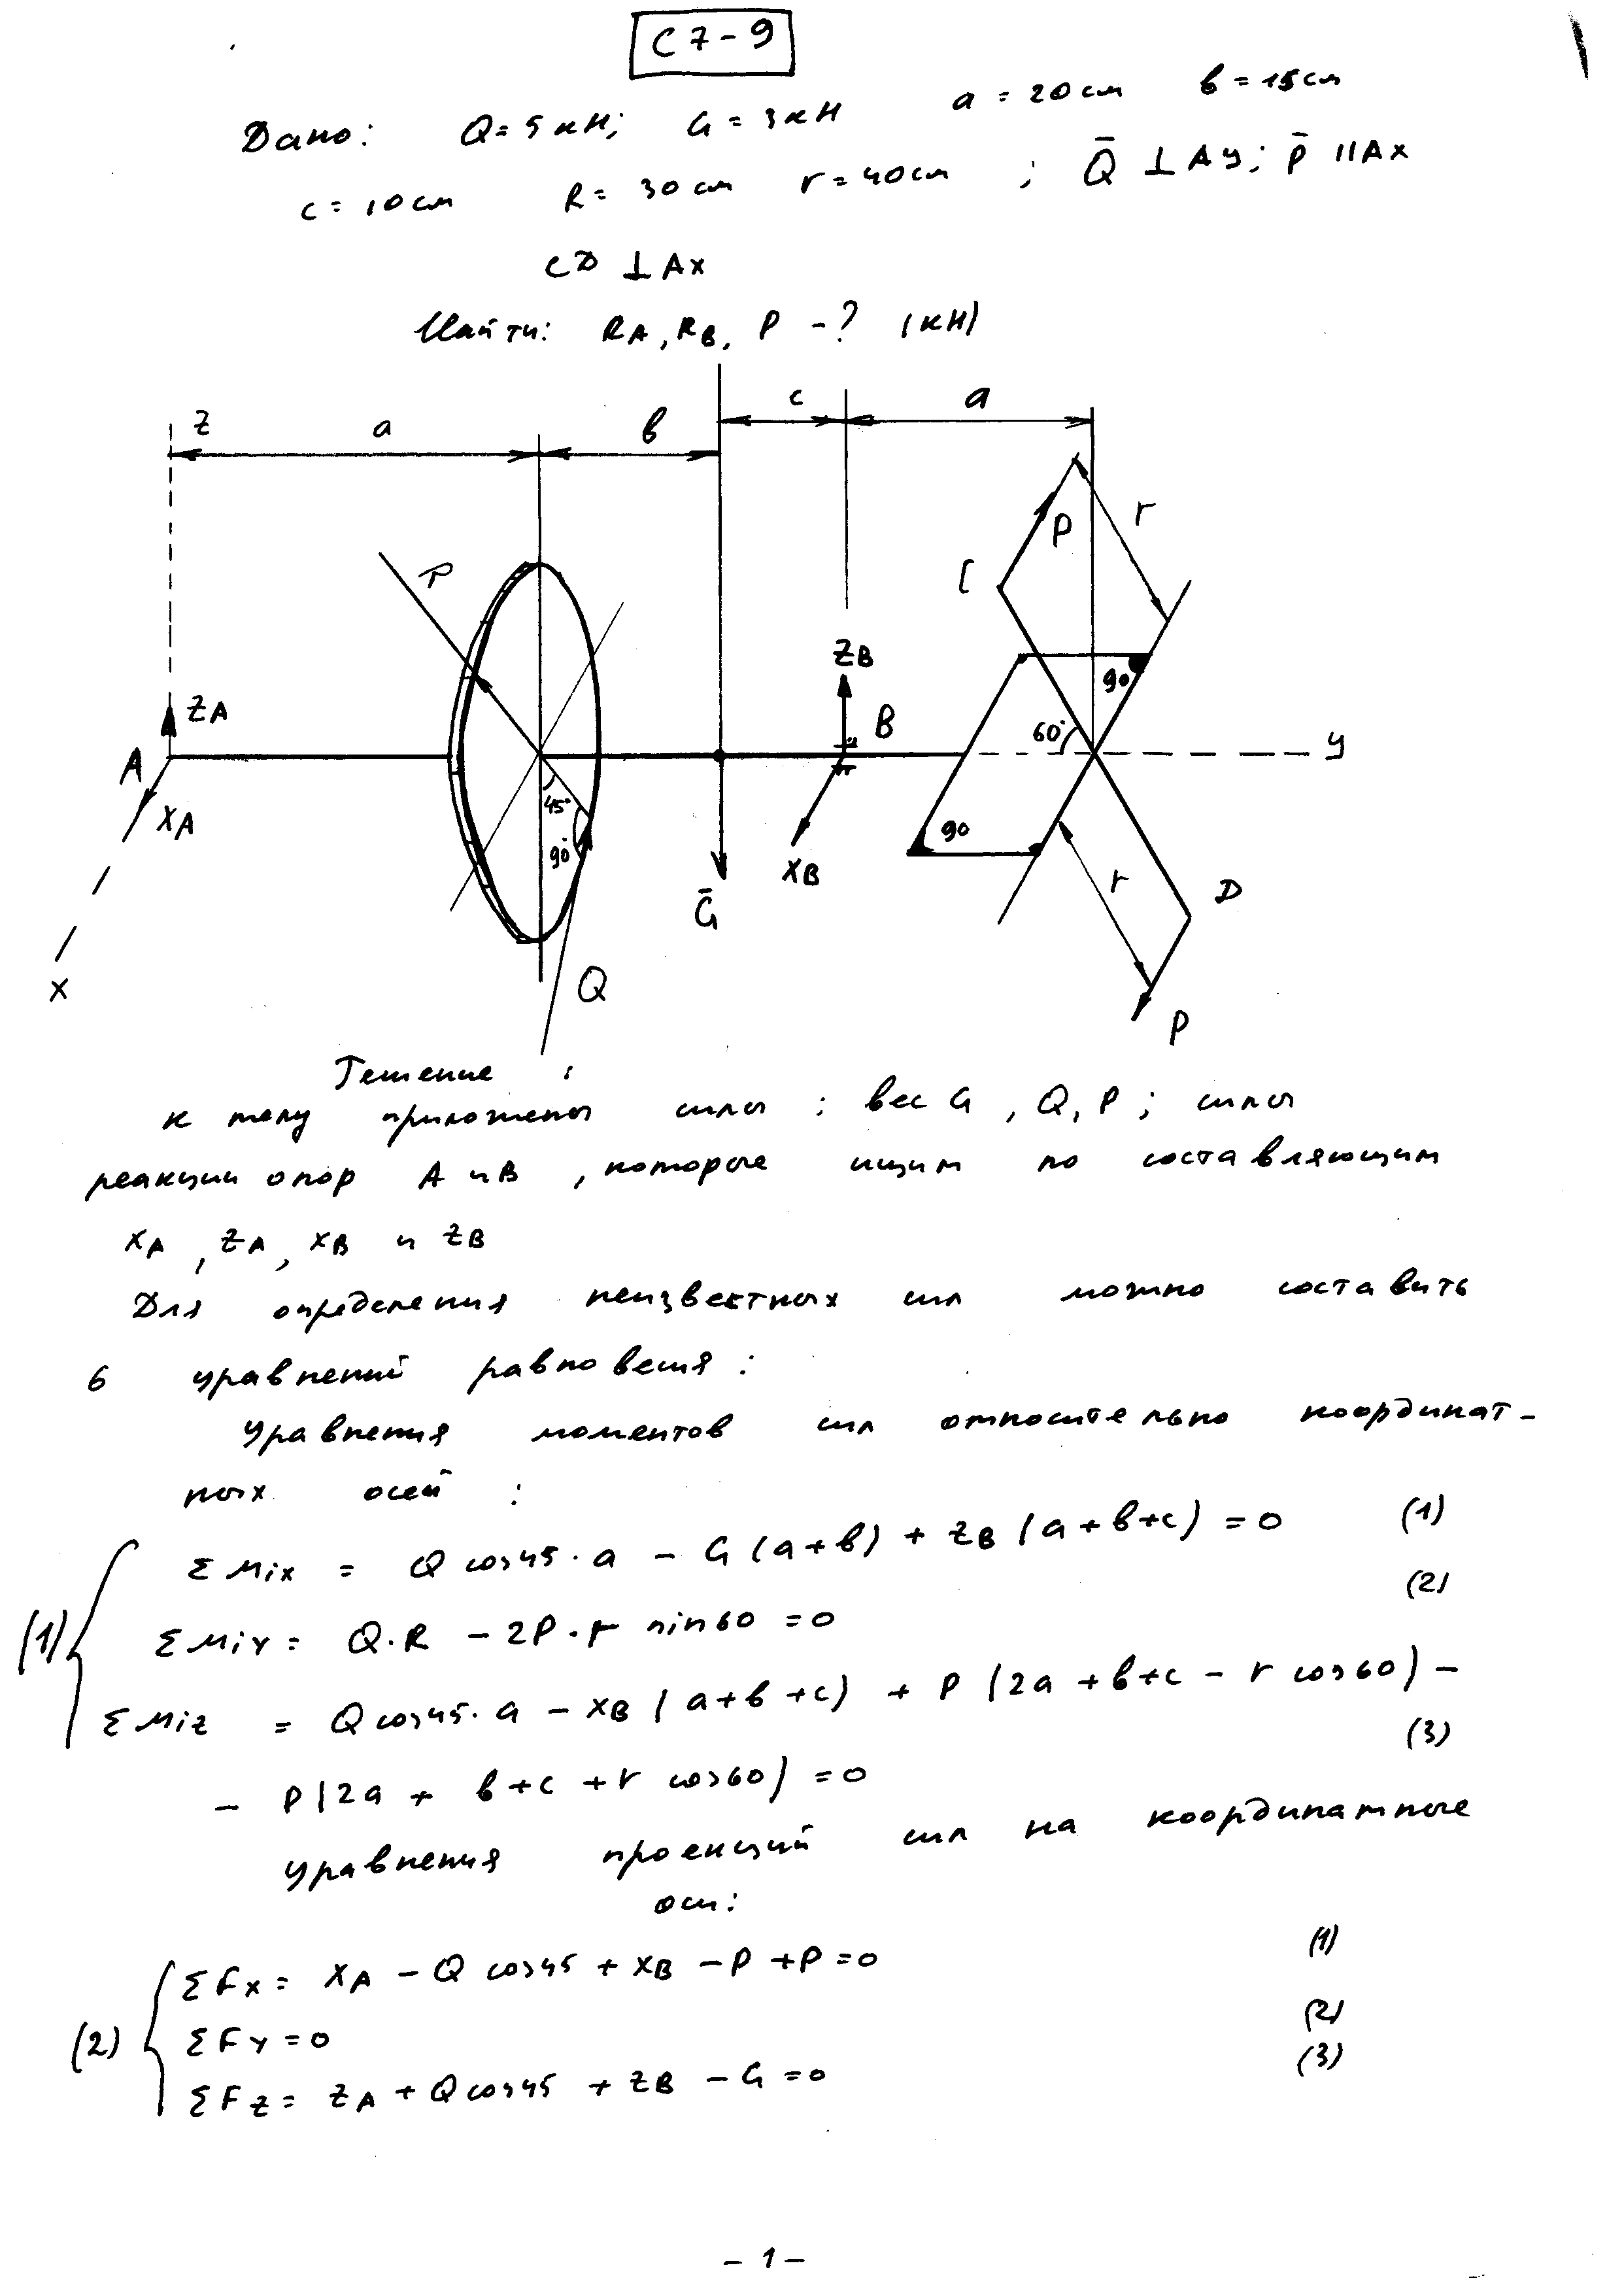 С 7 - 9
Дано: Q = 5 кН; G = 3 кН a = 20 см в = 15 см
c = 10 см R = 30 см r = 40 см ; Q̄ ⊥ Ay; P̄ || Ax
CD ⊥ Ax
Найти: RA, RB, P - ? (кН)
z a в c a
P C P r
zA zB B 90° 60° y
A xA 45° 90° 90
xB Ḡ r D
x Q P
Решение :
к телу приложены силы : вес G , Q, P ; силы
реакции опор A и B , которые ищим по составляющим
xA , zA , xB и zB
Для определения неизвестных сил можно составить
6 уравнений равновесия :
Уравнения моментов сил относительно координат-
ных осей :
(1) Σ Mix = Q cos45 · a - G (a+в) + zB (a+в+c) = 0 (1)
Σ Miy = Q·R - 2P·r sin60 = 0 (2)
Σ Miz = Q cos45 · a - xB (a+в+c) + P (2a+в+c - r cos60) -
- P(2a + в+c + r cos60) = 0 (3)
уравнения проекций сил на координатные
оси:
(2) Σ Fx = xA - Q cos45 + xB - P + P = 0 (1)
Σ Fy = 0 (2)
Σ Fz = zA + Q cos45 + zB - G = 0 (3)
- 1 -